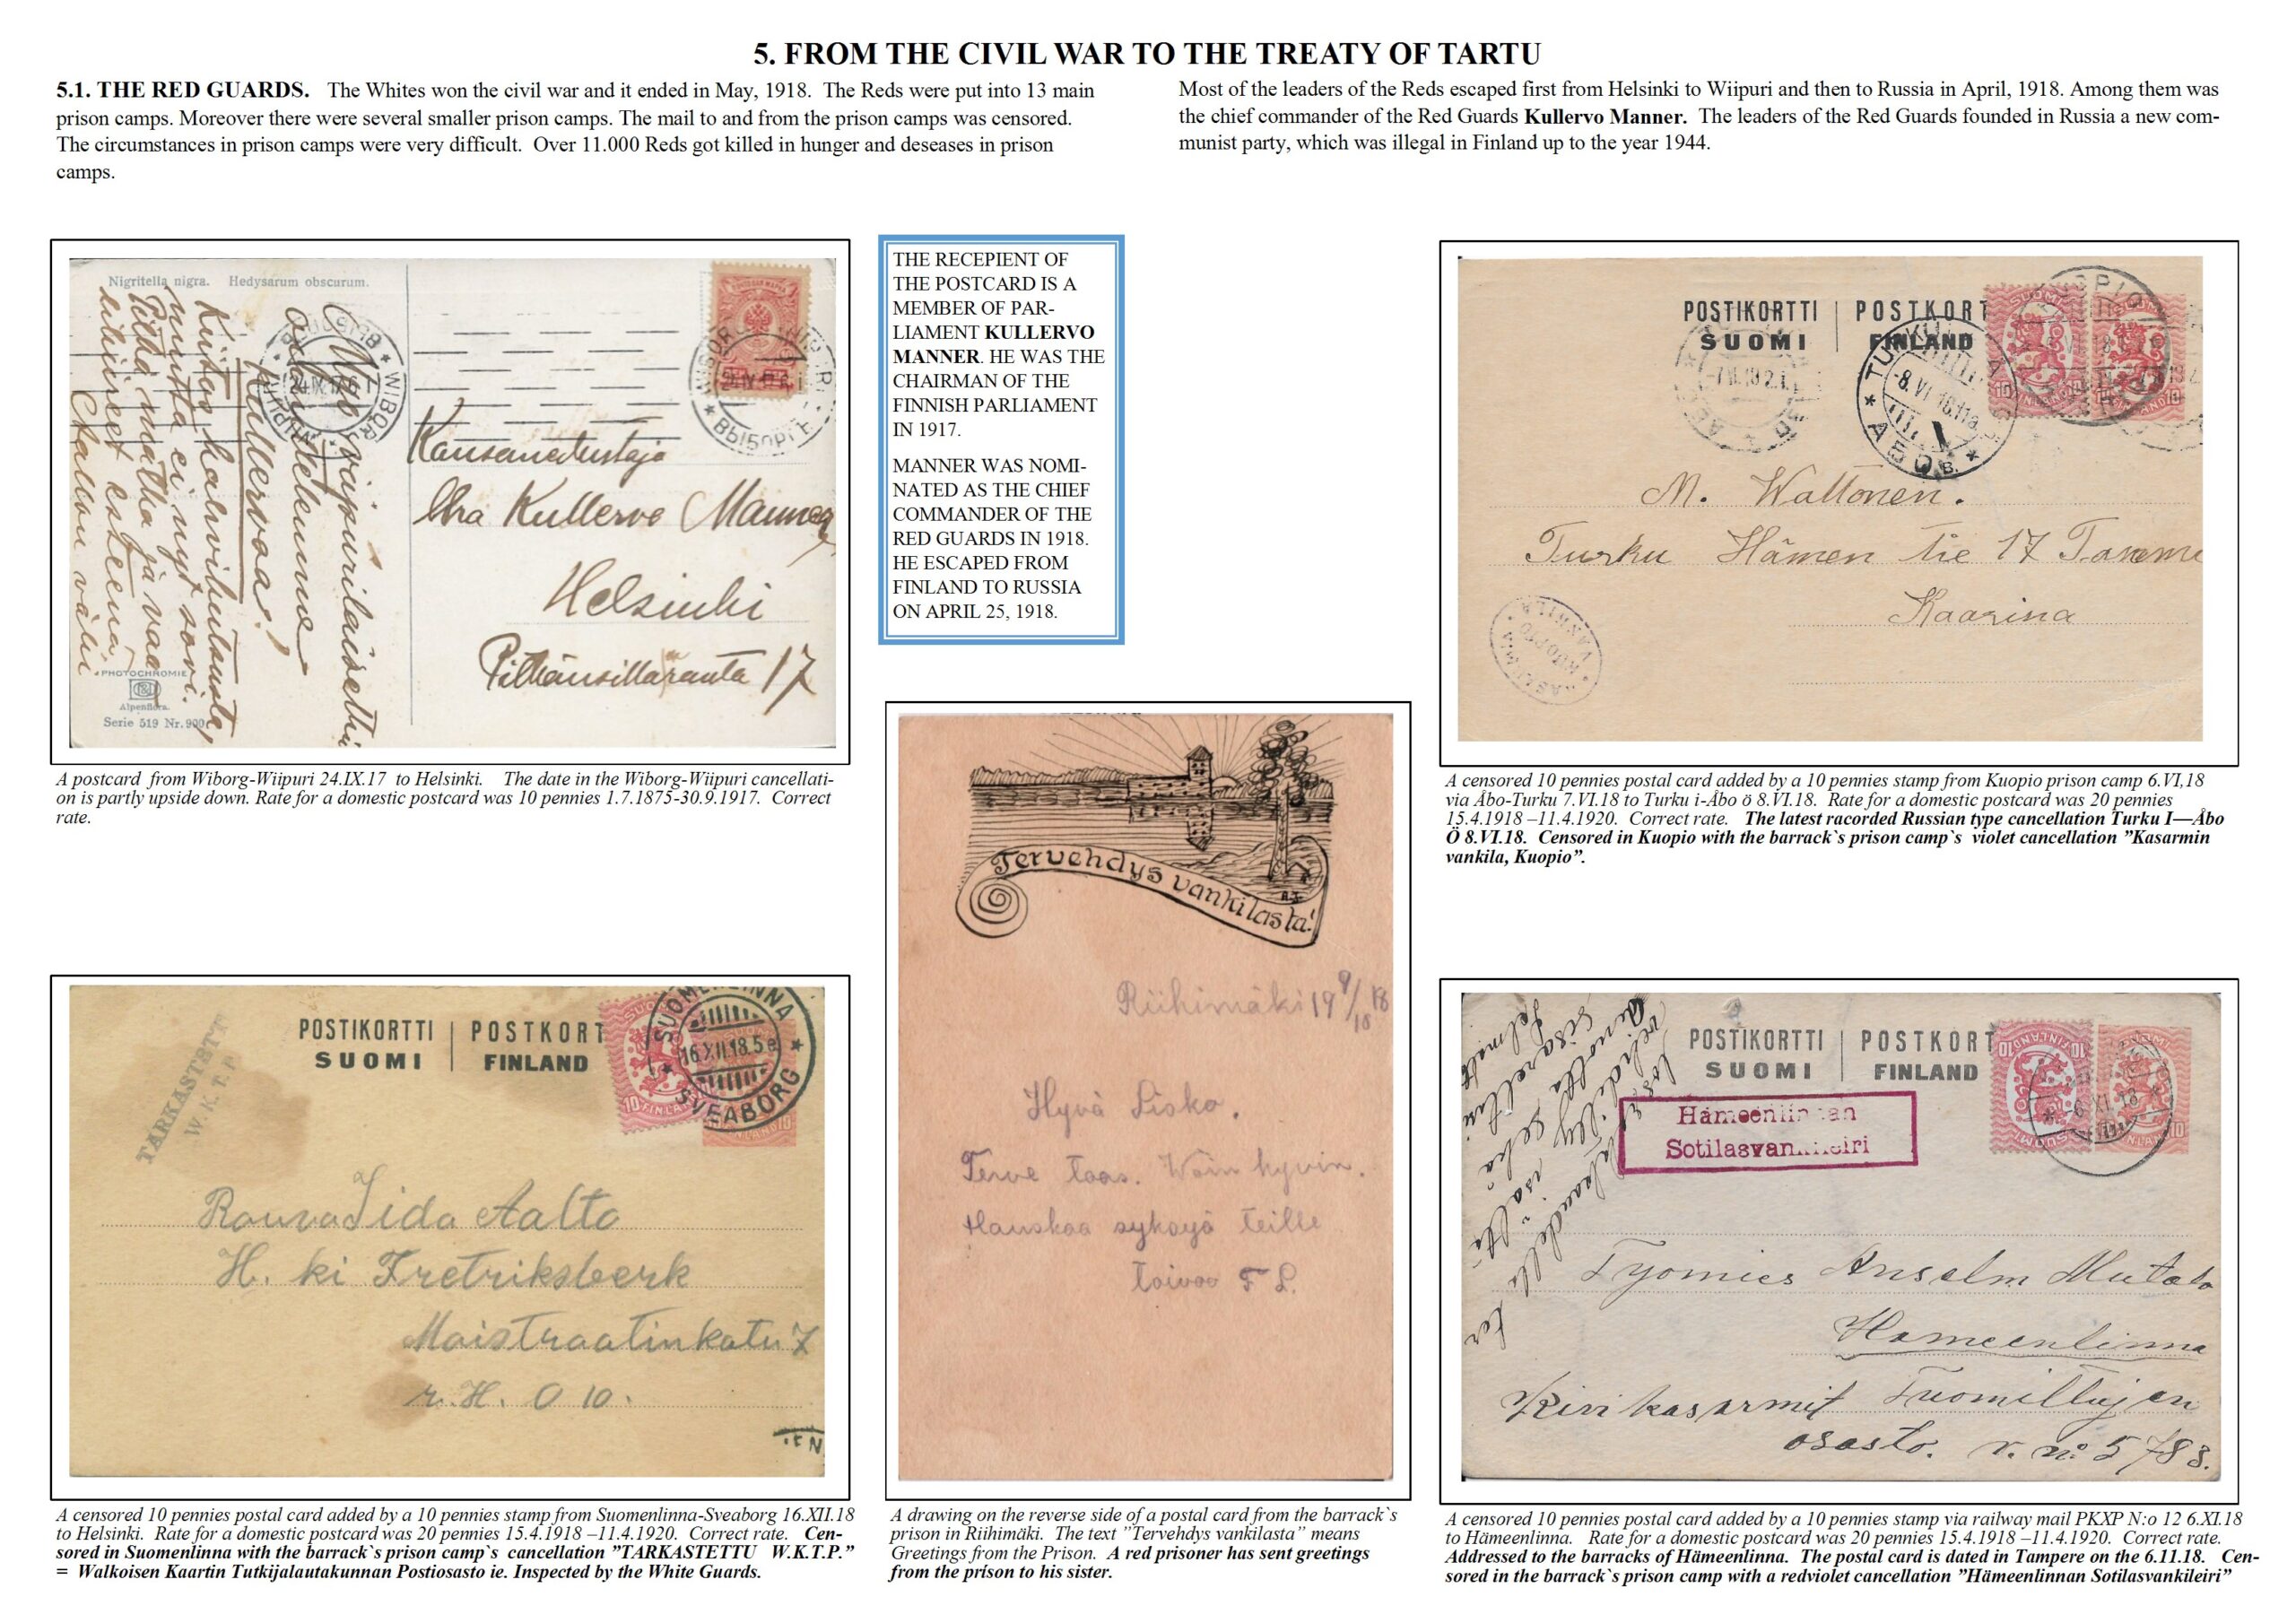 5. FROM THE CIVIL WAR TO THE TREATY OF TARTU
5.1. THE RED GUARDS. The Whites won the civil war and it ended in May, 1918. The Reds were put into 13 main
prison camps. Moreover there were several smaller prison camps. The mail to and from the prison camps was censored.
The circumstances in prison camps were very difficult. Over 11.000 Reds got killed in hunger and deseases in prison
camps.
Most of the leaders of the Reds escaped first from Helsinki to Wiipuri and then to Russia in April, 1918. Among them was
the chief commander of the Red Guards Kullervo Manner. The leaders of the Red Guards founded in Russia a new com-
munist party, which was illegal in Finland up to the year 1944.
Nigritella nigra. Hedysarum obscurum.
Kansanedustaja
Hra Kullervo Manner
Helsinki
Pitkänsillanranta 17
PHOTOCHROMIE
Alpenflora.
Serie 519 Nr. 900
WIBORG
ВЫБОРГЪ
A postcard from Wiborg-Wiipuri 24.IX.17 to Helsinki. The date in the Wiborg-Wiipuri cancellati-
on is partly upside down. Rate for a domestic postcard was 10 pennies 1.7.1875-30.9.1917. Correct
rate.
THE RECEPIENT OF
THE POSTCARD IS A
MEMBER OF PAR-
LIAMENT KULLERVO
MANNER. HE WAS THE
CHAIRMAN OF THE
FINNISH PARLIAMENT
IN 1917.
MANNER WAS NOMI-
NATED AS THE CHIEF
COMMANDER OF THE
RED GUARDS IN 1918.
HE ESCAPED FROM
FINLAND TO RUSSIA
ON APRIL 25, 1918.
POSTIKORTTI | POSTKORT
SUOMI | FINLAND
M. Waltonen.
Turku Hämen tie 17 Tamme
Kaarina
A censored 10 pennies postal card added by a 10 pennies stamp from Kuopio prison camp 6.VI,18
via Åbo-Turku 7.VI.18 to Turku i-Åbo ö 8.VI.18. Rate for a domestic postcard was 20 pennies
15.4.1918 –11.4.1920. Correct rate. The latest racorded Russian type cancellation Turku I—Åbo
Ö 8.VI.18. Censored in Kuopio with the barrack`s prison camp`s violet cancellation ”Kasarmin
vankila, Kuopio”.
POSTIKORTTI | POSTKORT
SUOMI | FINLAND
TARKASTETT
W. K. T. P
SUOMENLINNA
16.XII.18.5
SVEABORG
Rouva Iida Aalto
H. ki Fretriksberk
Maistraatinkatu 7
r. H. O 10.
A censored 10 pennies postal card added by a 10 pennies stamp from Suomenlinna-Sveaborg 16.XII.18
to Helsinki. Rate for a domestic postcard was 20 pennies 15.4.1918 –11.4.1920. Correct rate. Cen-
sored in Suomenlinna with the barrack`s prison camp`s cancellation ”TARKASTETTU W.K.T.P.”
= Walkoisen Kaartin Tutkijalautakunnan Postiosasto ie. Inspected by the White Guards.
Tervehdys vankilasta!
Riihimäki 19 9/10 18
Hyvä Sisko.
Terve taas. Woin hyvin.
Hauskaa syksyä teille
toivoo F L.
A drawing on the reverse side of a postal card from the barrack`s
prison in Riihimäki. The text ”Tervehdys vankilasta” means
Greetings from the Prison. A red prisoner has sent greetings
from the prison to his sister.
POSTIKORTTI | POSTKORT
SUOMI | FINLAND
Hämeenlinnan
Sotilasvankileiri
Tyomies Anselm
Hameenlinna
Kivikasarmit
osasto. v. n:o 5783.
A censored 10 pennies postal card added by a 10 pennies stamp via railway mail PKXP N:o 12 6.XI.18
to Hämeenlinna. Rate for a domestic postcard was 20 pennies 15.4.1918 –11.4.1920. Correct rate.
Addressed to the barracks of Hämeenlinna. The postal card is dated in Tampere on the 6.11.18. Cen-
sored in the barrack`s prison camp with a redviolet cancellation ”Hämeenlinnan Sotilasvankileiri”